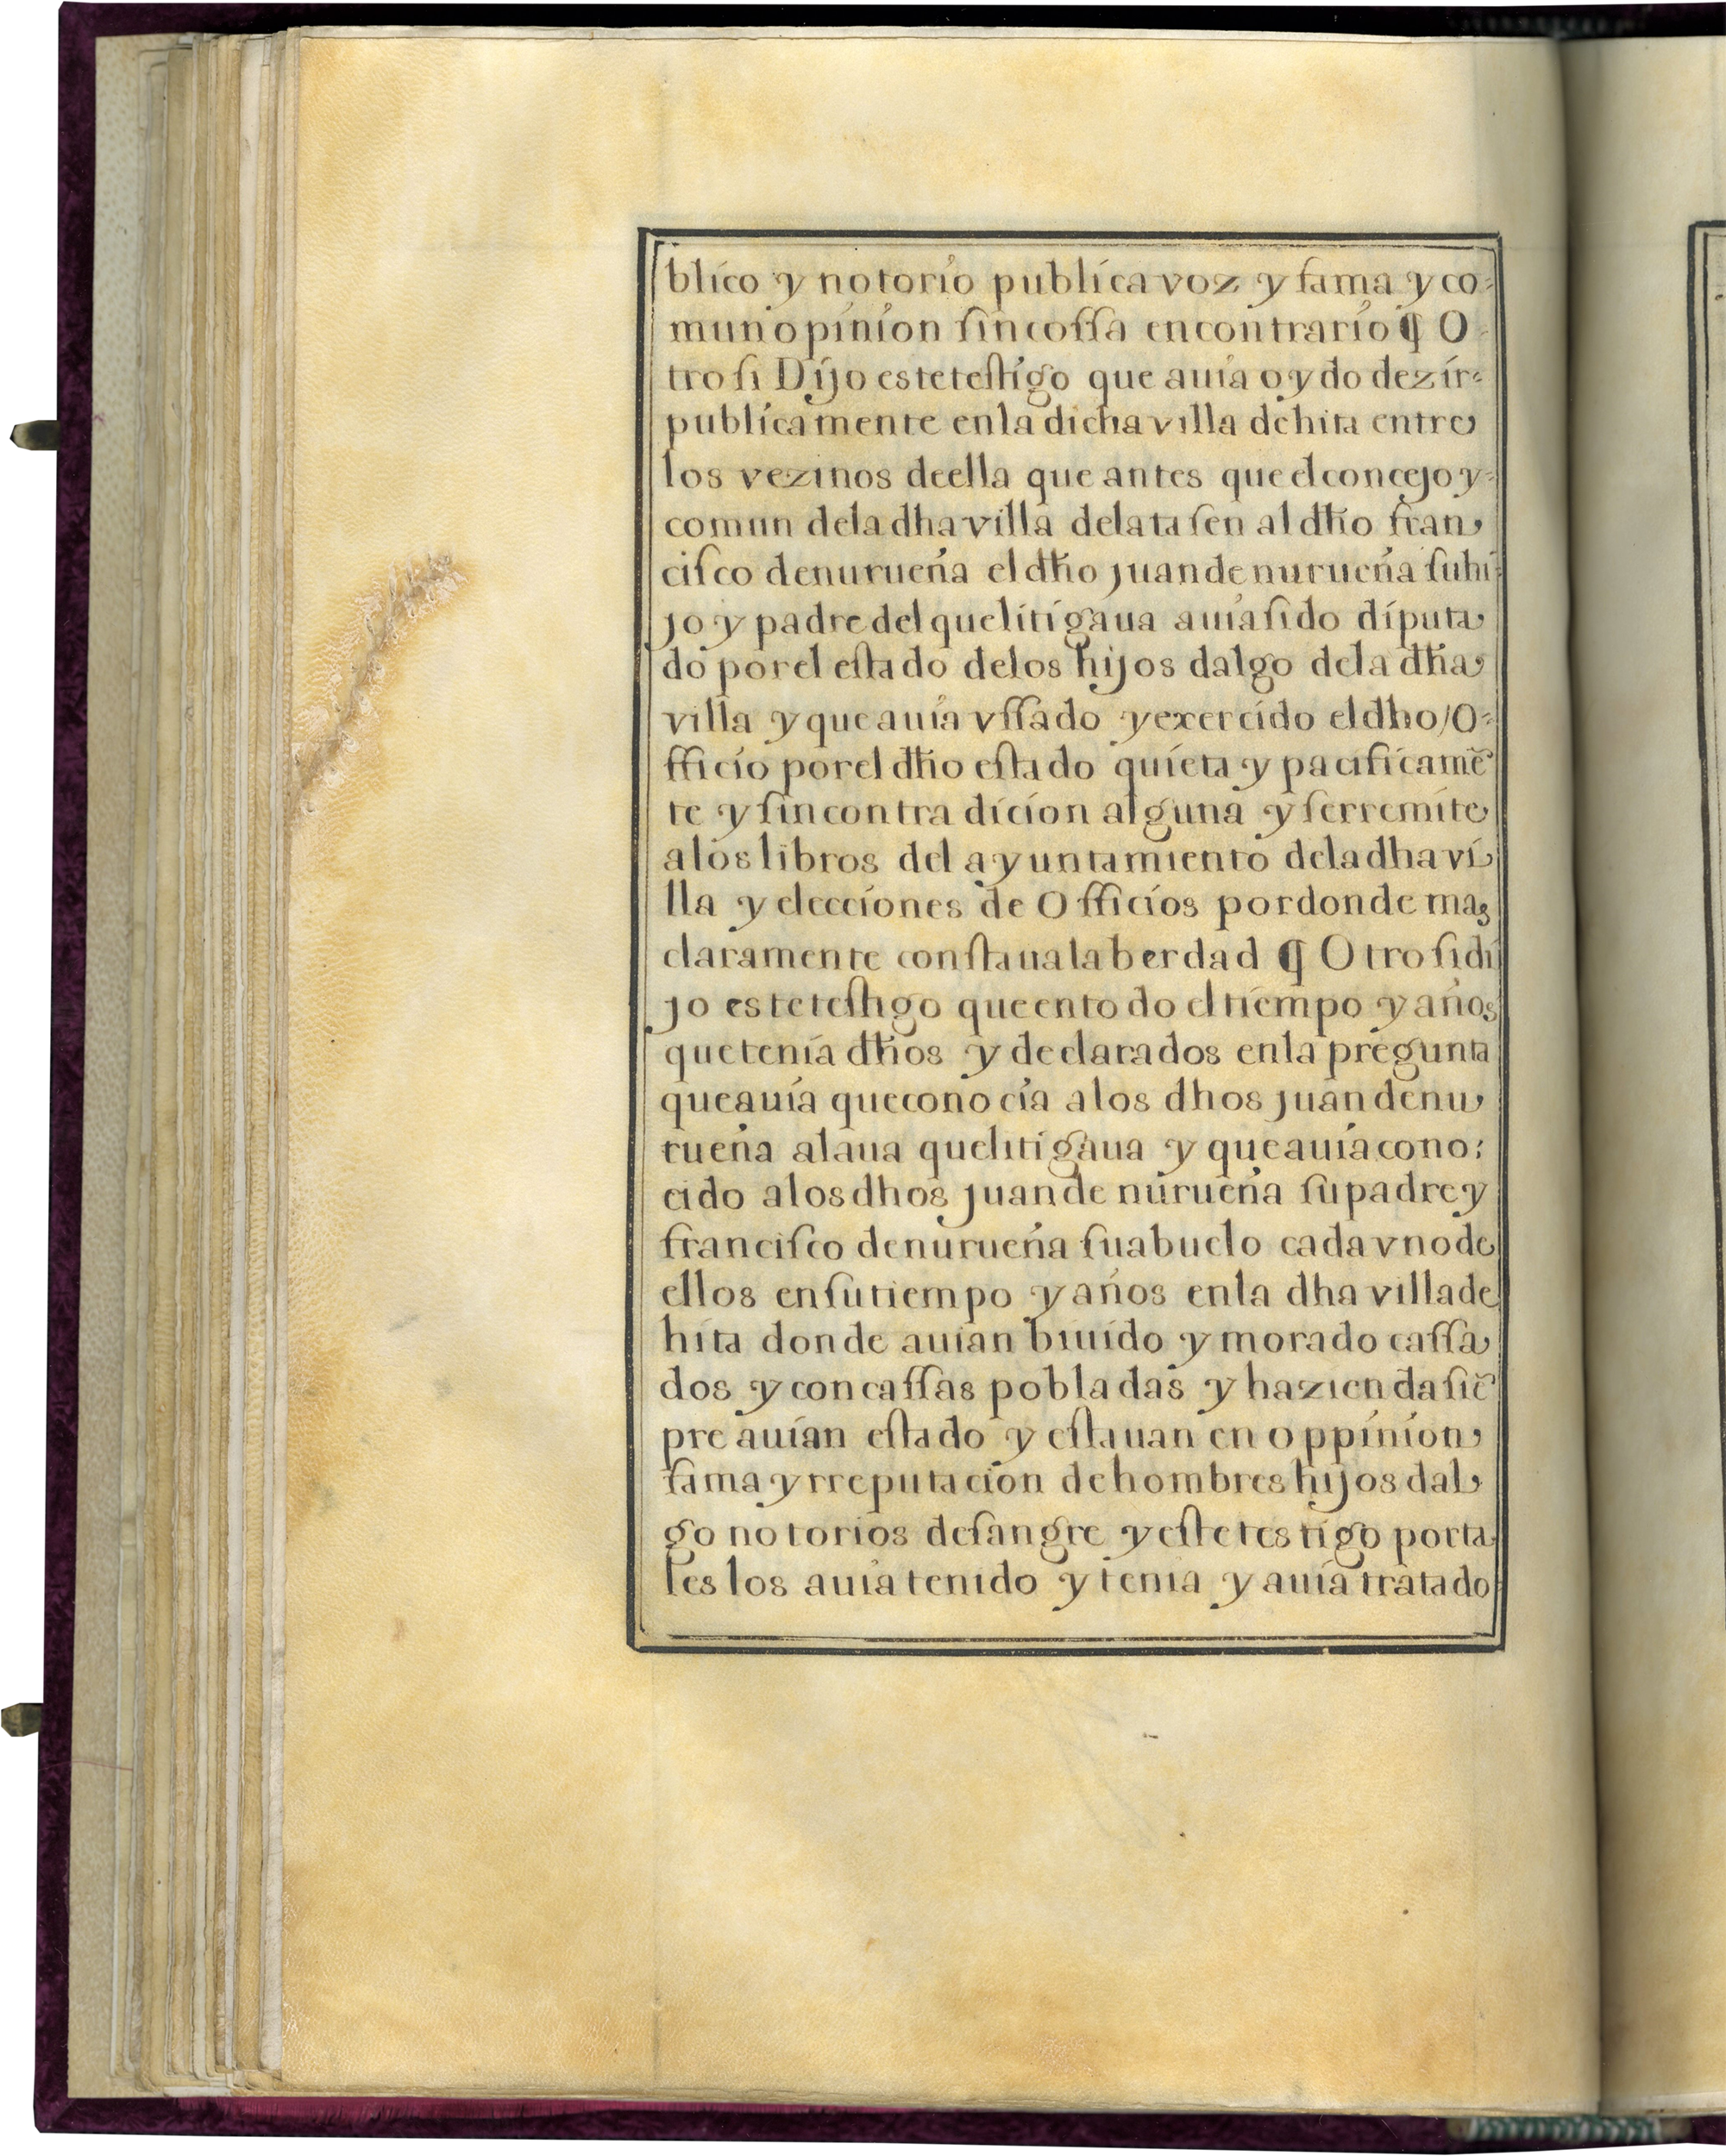 blico y notorio publica voz y fama y co-
mun opinion ſin coſſa en contrario ¶ O-
tro ſi Dijo este teſtigo que auia oydo dezir-
publicamente en la dicha villa de hita entre
los vezinos de ella que antes que el concejo y-
comun de la dha villa delataſen al dho fran,
ciſco de nurueña el dho juan de nurueña ſu hi-
jo y padre del que litigaua auia ſido diputa,
do por el eſtado de los hijos dalgo de la dha,
villa y que auia vſſado y exercido el dho/O-
fficio por el dho eſtado quieta y pacificamē
te y ſin contra dicion alguna y ſerremite
a los libros del ayuntamiento de la dha vi,
lla y elecciones de Officios por donde mas
claramente conſtaua la berdad ¶ Otro ſi di
jo este teſtigo que en todo el tiempo y años
que tenia dhos y declarados en la pregunta
que auia que conocia a los dhos juan de nu,
rueña alaua que litigaua y que auia cono:
cido a los dhos juan de nurueña ſu padre y
franciſco de nurueña ſu abuelo cada vno de
ellos en ſu tiempo y años en la dha villa de
hita donde auian biuido y morado caſſa,
dos y con caſſas pobladas y hazienda ſiē
pre auian eſtado y eſtauan en oppinion,
fama y rreputacion de hombres hijos dal,
go notorios de ſangre y eſte testigo por ta
les los auia tenido y tenia y auia tratado